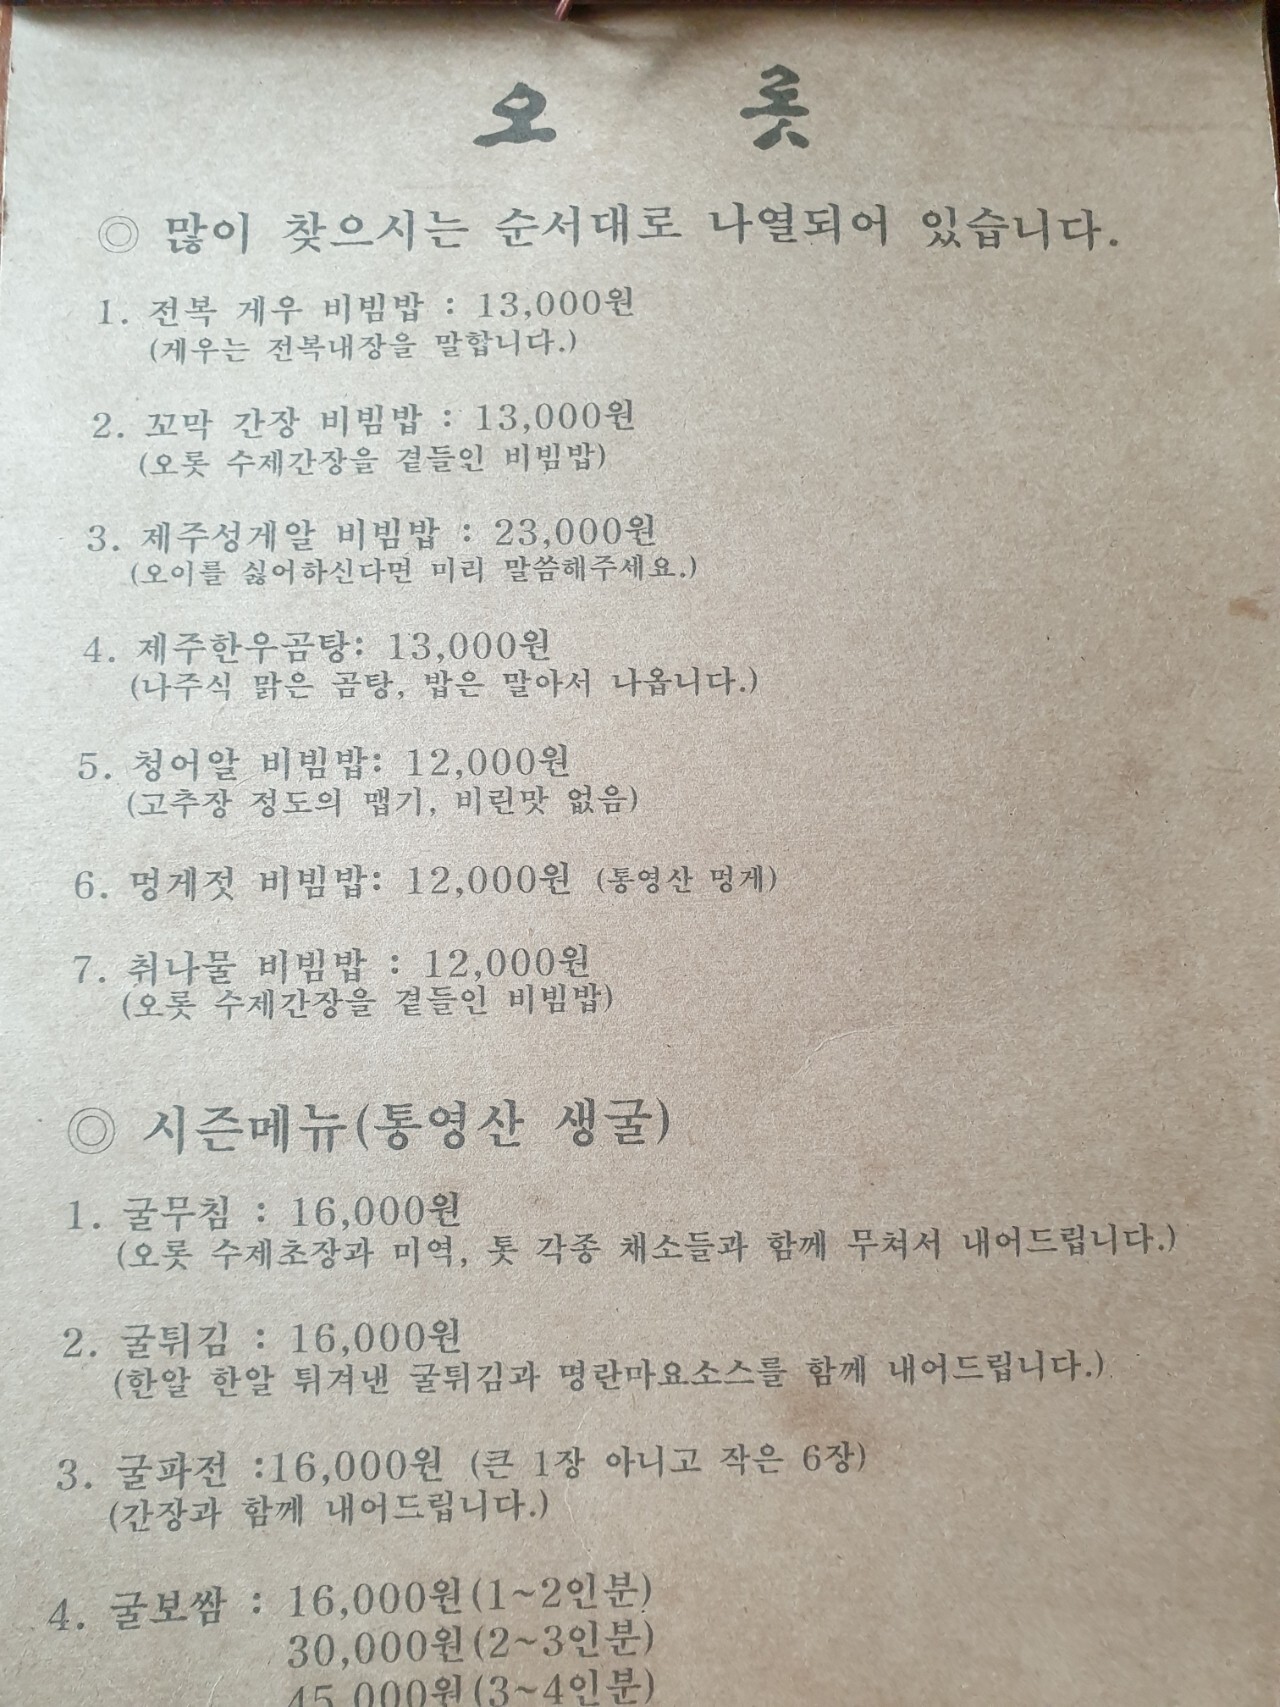 오 롯
◎ 많이 찾으시는 순서대로 나열되어 있습니다.
1. 전복 게우 비빔밥 : 13,000원
(게우는 전복내장을 말합니다.)
2. 꼬막 간장 비빔밥 : 13,000원
(오롯 수제간장을 곁들인 비빔밥)
3. 제주성게알 비빔밥 : 23,000원
(오이를 싫어하신다면 미리 말씀해주세요.)
4. 제주한우곰탕: 13,000원
(나주식 맑은 곰탕, 밥은 말아서 나옵니다.)
5. 청어알 비빔밥: 12,000원
(고추장 정도의 맵기, 비린맛 없음)
6. 멍게젓 비빔밥: 12,000원 (통영산 멍게)
7. 취나물 비빔밥 : 12,000원
(오롯 수제간장을 곁들인 비빔밥)
◎ 시즌메뉴(통영산 생굴)
1. 굴무침 : 16,000원
(오롯 수제초장과 미역, 톳 각종 채소들과 함께 무쳐서 내어드립니다.)
2. 굴튀김 : 16,000원
(한알 한알 튀겨낸 굴튀김과 명란마요소스를 함께 내어드립니다.)
3. 굴파전 :16,000원 (큰 1장 아니고 작은 6장)
(간장과 함께 내어드립니다.)
4. 굴보쌈 : 16,000원(1~2인분)
30,000원(2~3인분)
45,000원(3~4인분)